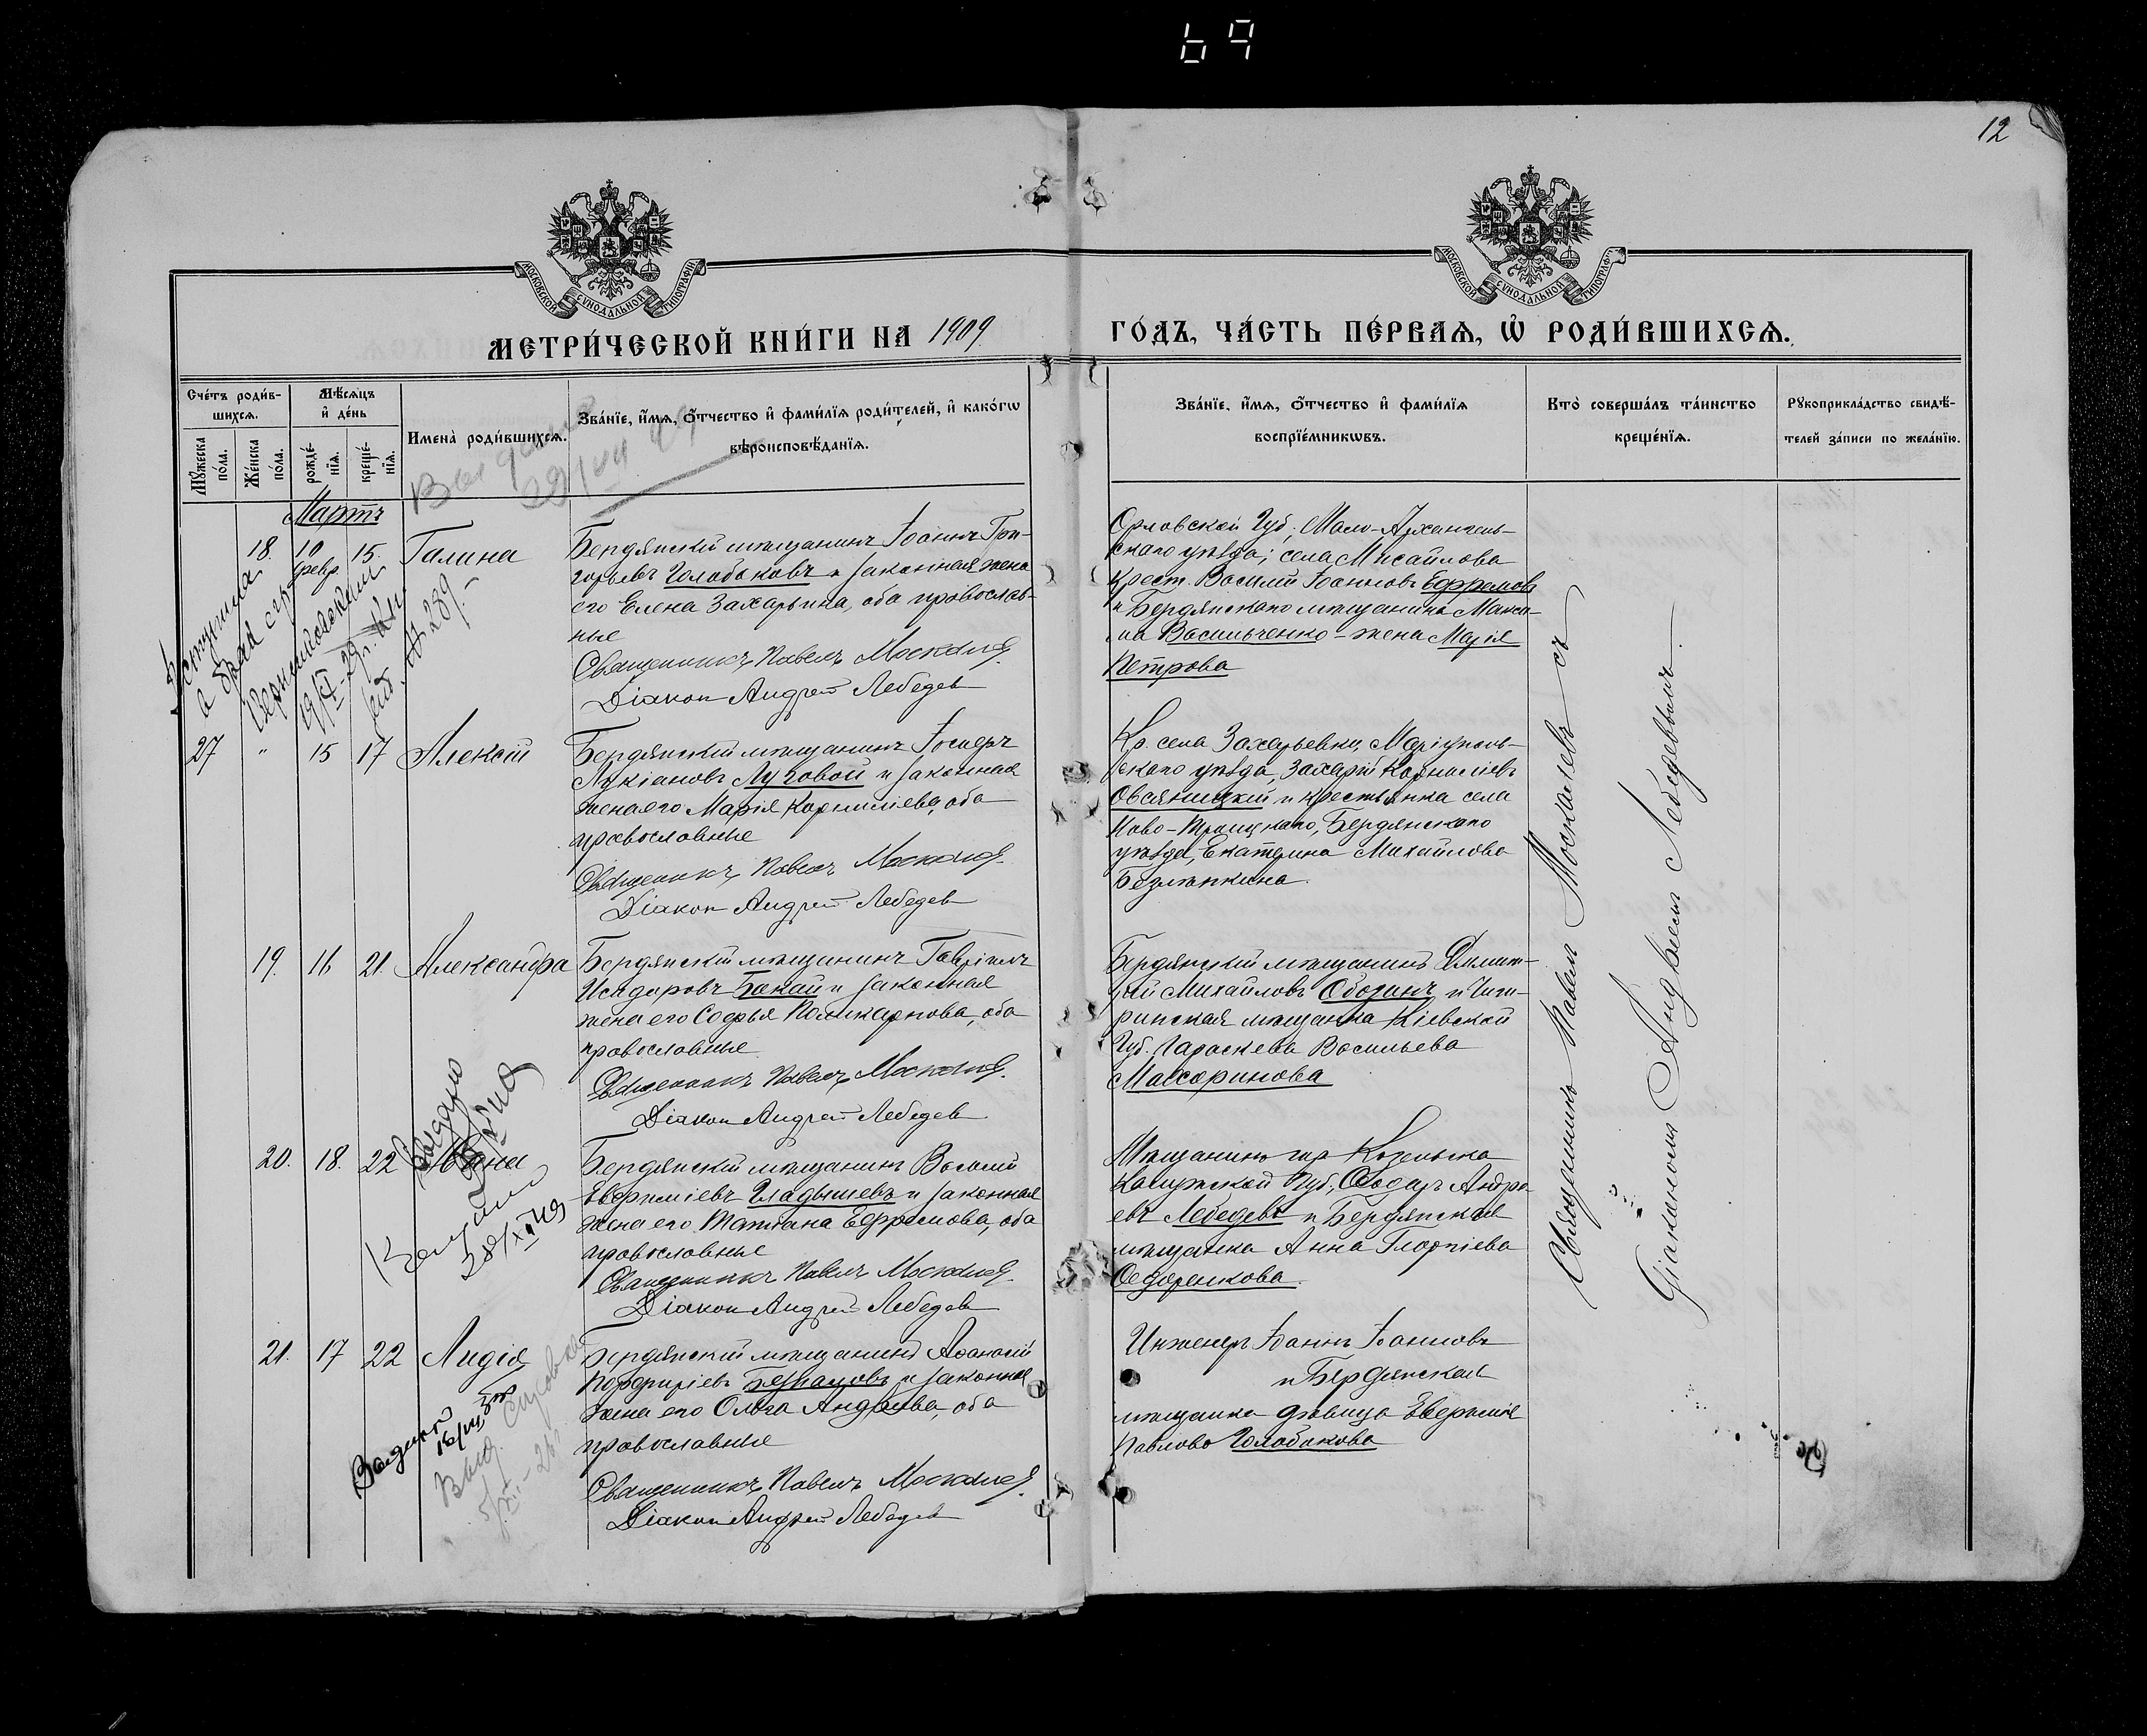 69
12
МОСКОВСКОЙ СѴНОДАЛЬНОЙ ТИПОГРАФІИ
МОСКОВСКОЙ СѴНОДАЛЬНОЙ ТИПОГРАФІИ
МЕТРИ́ЧЕСКОЙ КНИ́ГИ НА 1909
ГО́ДЪ, ЧА́СТЬ ПЕ́РВАѦ, Ѡ҆ РОДИ́ВШИХСѦ.
Сче́тъ роди́в-
шихсѧ.
Мꙋ́жеска
по́ла.
Же́нска
по́ла.
Мѣ́сѧцъ
и҆ де́нь
рожде́-
нїѧ.
креще́-
нїѧ.
Имена̀ роди́вшихсѧ.
Зва́нїе, и҆́мѧ, ѻ҆́тчество и҆ фами́лїѧ роди́телей, и҆ како́гѡ
вѣроисповѣ́данїѧ.
Зва́нїе, и҆́мѧ, ѻ҆́тчество и҆ фами́лїѧ
воспрїе́мникѡвъ.
Кто̀ соверша́лъ та́инство
креще́нїѧ.
Рꙋкоприкла́дство свидѣ́-
телей за́писи по жела́нїю.
Мартъ
18. 10 февр. 15. Галина
Бердянскій мѣщанинъ Іоаннъ Гри-
горьевъ Голобоковъ и законная жена
его Елена Захарьина, оба православ-
ные
Священникъ Павелъ Москалев
Діакон Андрей Лебедев
Орловской Губ., Мало-Архангель-
скаго уѣзда, села Мисайлова
крест. Василій Іоанновъ Ефремовъ
и Бердянскаго мѣщанина Макси-
ма Васильченко - жена Марія
Петрова
Вступила
в брак
№ 289.
27 " 15 17 Алексій
Бердянскій мѣщанинъ Іосифъ
Лукіановъ Луговой и законная
жена его Марія Корниліева, оба
православные
Священникъ Павелъ Москалев
Діакон Андрей Лебедев
Кр. села Захарьевки, Маріуполь-
скаго уѣзда, Захарій Корниліевъ
Овсяницкій и крестьянка села
Ново-Троицкаго, Бердянскаго
уѣзда, Екатерина Михайлова
19. 16 21. Александра
Бердянскій мѣщанинъ Гавріилъ
Исидоровъ Бакай и законная
жена его Софья Поликарпова, оба
православные
Священникъ Павелъ Москалев
Діакон Андрей Лебедев
Бердянскій мѣщанинъ Димит-
рій Михайловъ и Чиги-
ринская мѣщанка Кіевской
Губ. Параскева Васильева
20. 18. 22
Бердянскій мѣщанинъ Василій
Евфиміевъ Гладышевъ и законная
жена его Татіана Ефремова, оба
православные
Священникъ Павелъ Москалев
Діакон Андрей Лебедев
Мѣщанинъ гор. Козельска
Калужской Губ., Ѳеодоръ Андре-
евъ Лебедевъ и Бердянская
мѣщанка Анна Георгіева
Ѳедоренкова
21. 17 22 Лидія
Бердянскій мѣщанинъ Аѳанасій
Порфиріевъ и законная
жена его Ольга Андреева, оба
православные
Священникъ Павелъ Москалев
Діакон Андрей Лебедев
Инженеръ Іоаннъ Іоанновъ
и Бердянская
мѣщанка дѣвица Евфимія
Павлова Голобокова
Священникъ Павелъ Москалевъ съ
діакономъ Андреемъ Лебедевымъ.